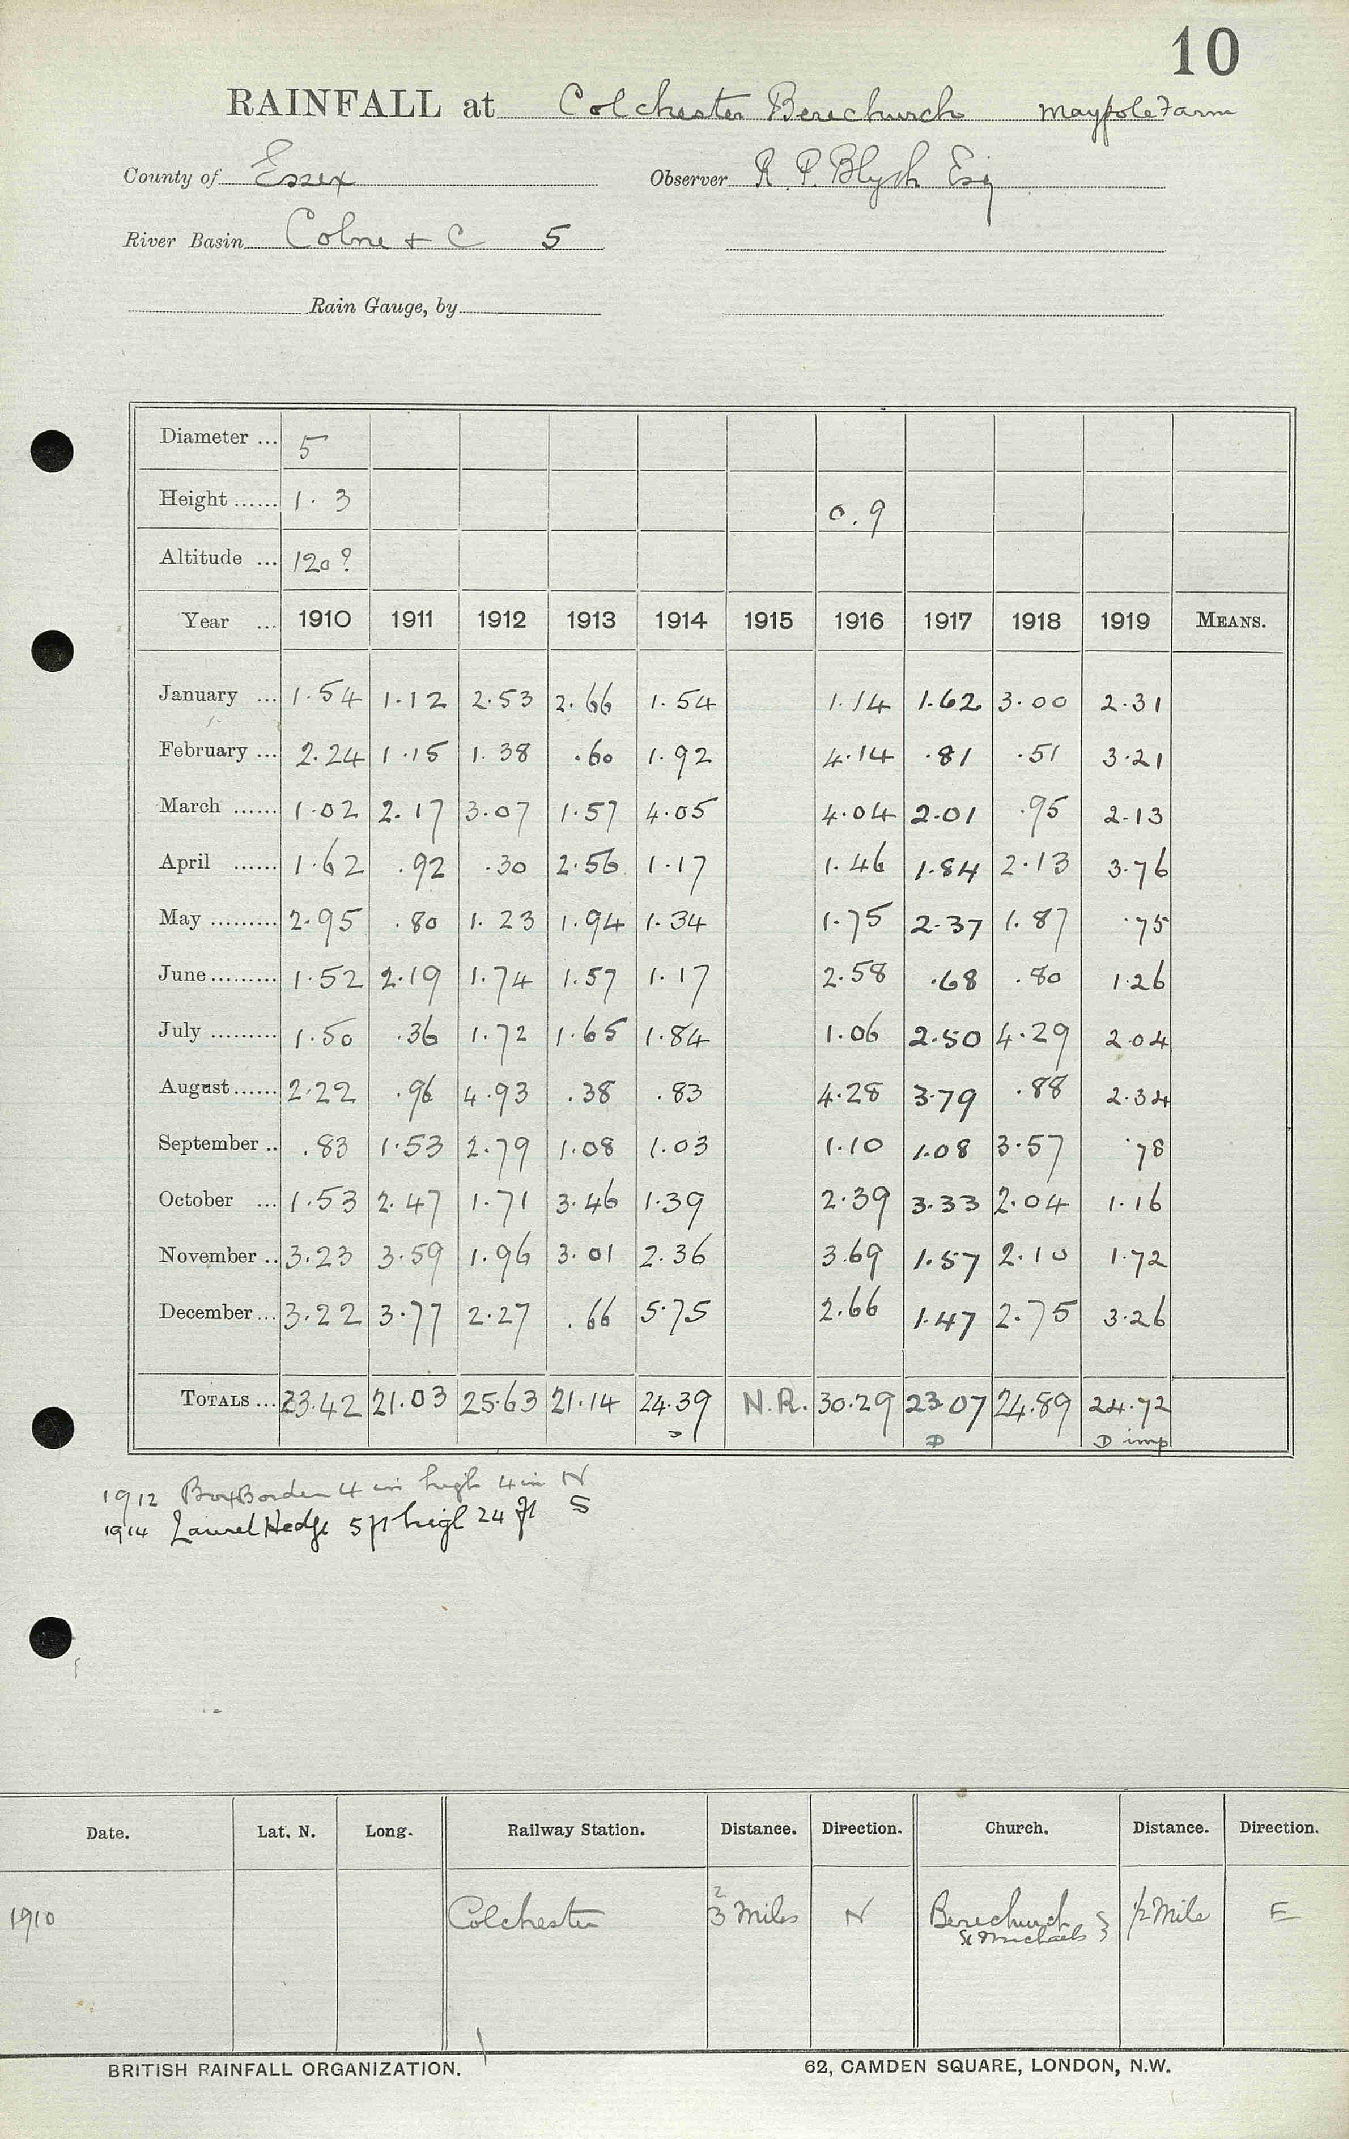 10
RAINFALL at Colchester Berechurch Maypole Farm
County of Essex Observer R. P. Blyth Esq
River Basin Colne + C 5
Rain Gauge, by
Diameter ... 5
Height ...... 1. 3 0.9
Altitude ... 120?
Year ... 1910 1911 1912 1913 1914 1915 1916 1917 1918 1919 MEANS.
January ... 1.54 1.12 2.53 2.66 1.54 1.14 1.62 3.00 2.31
February ... 2.24 1.15 1.38 .60 1.92 4.14 .81 .51 3.21
March ...... 1.02 2.17 3.07 1.57 4.05 4.04 2.01 .95 2.13
April ...... 1.62 .92 .30 2.56 1.17 1.46 1.84 2.13 3.76
May ......... 2.95 .80 1.23 1.94 1.34 1.75 2.37 1.87 .75
June ......... 1.52 2.19 1.74 1.57 1.17 2.58 .68 .80 1.26
July ......... 1.50 .36 1.72 1.65 1.84 1.06 2.50 4.29 2.04
August ...... 2.22 .96 4.93 .38 .83 4.28 3.79 .88 2.34
September .. .83 1.53 2.79 1.08 1.03 1.10 1.08 3.57 .78
October ... 1.53 2.47 1.71 3.46 1.39 2.39 3.33 2.04 1.16
November .. 3.23 3.59 1.96 3.01 2.36 3.69 1.57 2.10 1.72
December ... 3.22 3.77 2.27 .66 5.75 2.66 1.47 2.75 3.26
TOTALS ... 23.42 21.03 25.63 21.14 24.39 N.R. 30.29 23.07 24.89 24.72
D D imp
1912 Box Borden 4 in high 4 in N
1914 Laurel Hedge 5 ft high 24 ft S
Date. Lat. N. Long. Railway Station. Distance. Direction. Church. Distance. Direction.
2
1910 Colchester 3 Miles N Berechurch 1/2 Mile E
St Michaels
BRITISH RAINFALL ORGANIZATION. 62, CAMDEN SQUARE, LONDON, N.W.